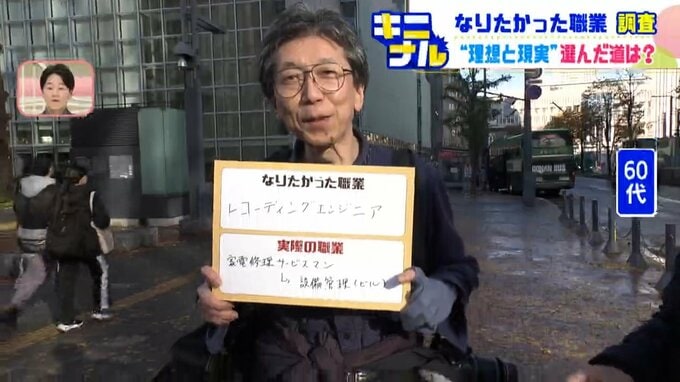 キニナル
なりたかった職業 調査
“理想と現実”選んだ道は？
60代
なりたかった職業
レコーディングエンジニア
実際の職業
家電修理サービスマン
↳ 設備管理（ビル）